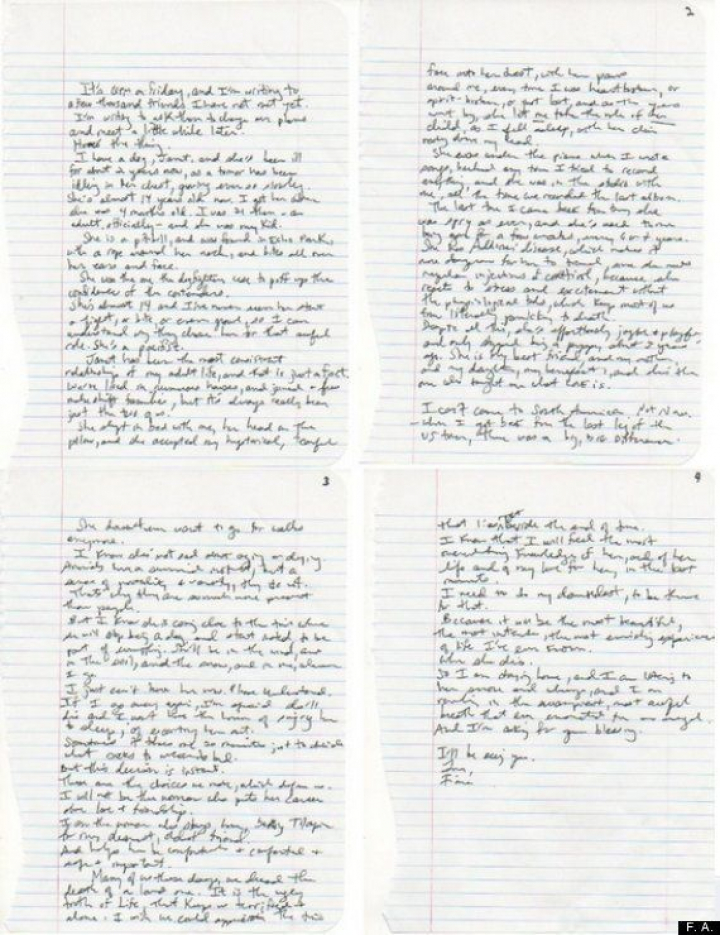 It's 6pm on Friday, and I'm writing to
a few thousand friends I have not met yet.
I'm writing to ask them to change our plans
and meet a little while later.
Here's the thing.
I have a dog, Janet, and she's been ill
for about 2 years now, as a tumor has been
idling in her chest, growing ever so slowly.
She's almost 14 years old now. I got her when
she was 4 months old. I was 21 then - an
adult, officially - and she was my kid.
She is a pitbull, and was found in Echo Park,
with a rope around her neck, and bites all over
her ears and face.
She was the one the dogfighters use to puff up the
confidence of the contenders.
She's almost 14 and I've never seen her start
a fight, or bite or even growl, so I can
understand why they chose her for that awful
role. She's a pacifist.
Janet has been the most consistent
relationship of my adult life, and that is just a fact.
We've lived in numerous houses, and joined a few
makeshift families, but it's always really been
just the two of us.
She slept in bed with me, her head on the
pillow, and she accepted my hysterical, tearful
2
face into her chest, with her paws
around me, every time I was heartbroken, or
spirit-broken, or just lost, and as the years
went by, she let me take the role of her
child, as I fell asleep, with her chin
resting above my head.
She was under the piano when I wrote
songs, barked any time I tried to record
anything, and she was in the studio with
me, all the time we recorded the last album.
The last time I came back from tour, she
was spry as ever, and she's used to me
being gone for a few weeks, every 6 or 7 years.
She has Addison's disease, which makes it
more dangerous for her to travel, since she needs
regular injections of cortisol, because she
reacts to stress and excitement without
the physiological tools, which keep most of us
from literally panicking to death.
Despite all this, she's effortlessly joyful + playful
and only stopped being a puppy, about 3 years
ago. She is my best friend, and my mother
and my daughter, my benefactor, and she's the
one who taught me what love is.
I can't come to South America. Not Now.
- When I got back from the last leg of the
US tour, there was a big, big difference.
3
She doesn't even want to go for walks
anymore.
I know she's not sad about aging or dying.
Animals have a survival instinct, but a
sense of mortality + vanity, they do not.
That's why they are so much more present
than people.
But I know she is coming close to the time where
she will stop being a dog, and start instead to be
part of everything. She'll be in the wind, and
in the soil, and the snow, and in me, wherever
I go.
I just can't leave her now. Please understand.
If I go away again, I'm afraid she'll
die and I won't have the honor of singing her
to sleep, of escorting her out.
Sometimes it takes me 20 minutes just to decide
what socks to wear to bed.
But this decision is instant.
These are the choices we make, which define us.
I will not be the woman who puts her career
above love + friendship.
I am the woman who stays home, baking Tilapia
for my dearest, oldest friend.
And helps her be comfortable + comforted +
safe + important.
Many of us these days, we dread the
death of a loved one. It is the ugly
truth of Life, that Keeps us terrified +
alone. I wish we could appreciate the time
4
that lies right beside the end of time.
I know that I will feel the most
overwhelming knowledge of her, and of her
life and of my love for her, in the last
moments.
I need to do my damnedest, to be there
for that.
Because it will be the most beautiful,
the most intense, the most enriching experience
of life I've ever known.
When she dies.
So I am staying home, and I am listening to
her snore and wheeze, and I am
reveling in the swampiest, most awful
breath that ever emanated from an angel.
And I'm asking for your blessing.
I'll be seeing you.
Love,
Fiona
F. A.